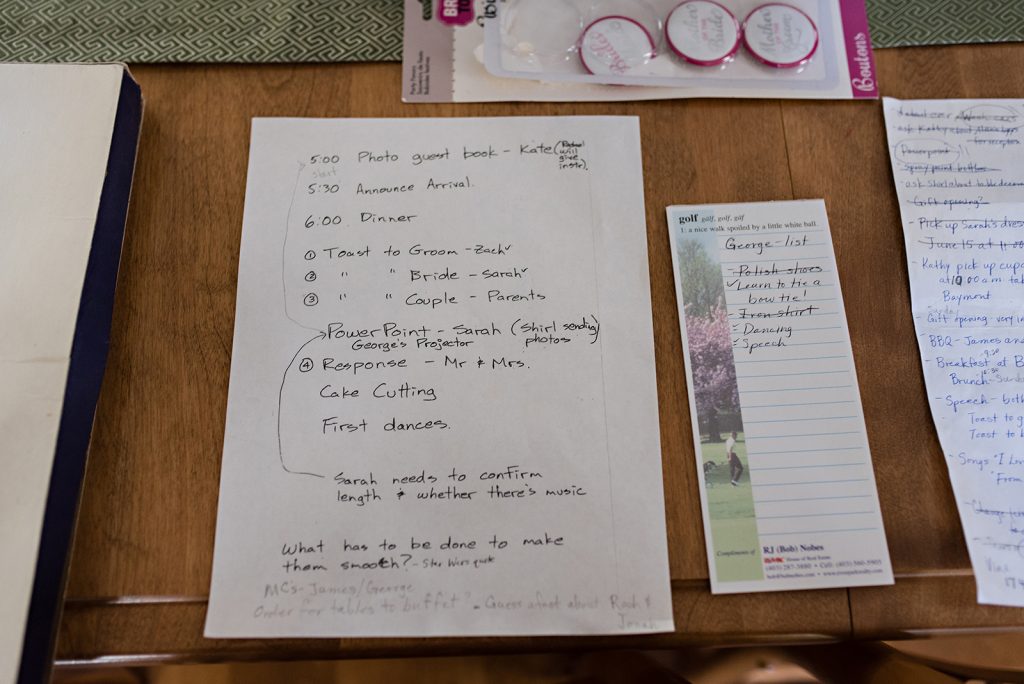 Bride
Mother of the Bride
Mother of the Groom
Boutons
5:00 Photo guest book - Kate (Rachel will give instr).
start
5:30 Announce Arrival.
6:00 Dinner
① Toast to Groom - Zach ✓
② " " Bride - Sarah ✓
③ " " Couple - Parents
PowerPoint - Sarah (Shirl sending photos)
George's Projector
④ Response - Mr & Mrs.
Cake Cutting
First dances.
Sarah needs to confirm
length & whether there's music
What has to be done to make
them smooth? - Star Wars quote
MC's - James/George
Order for tables to buffet? - Guess afoot about Rach &
golf gälf, golf, gôf
1: a nice walk spoiled by a little white ball.
George - list
- Polish shoes
✓ Learn to tie a
bow tie!
- Iron shirt
- Dancing
- Speech
Compliments of
RJ (Bob) Nobes
RE/MAX House of Real Estate
ask Kathy about
Powerpoint
Spray paint bottles
- ask Shirl about table decor
- Gift opening?
- Pick up Sarah's dres
June 15 at 11:00
- Kathy pick up cupc
at 10:00 am
Baymont
- Gift opening very in
BBQ - James an
- Breakfast at B
Brunch - Sarah
- Speech - both
Toast to g
Toast to b
- Songs "I Lov
"From